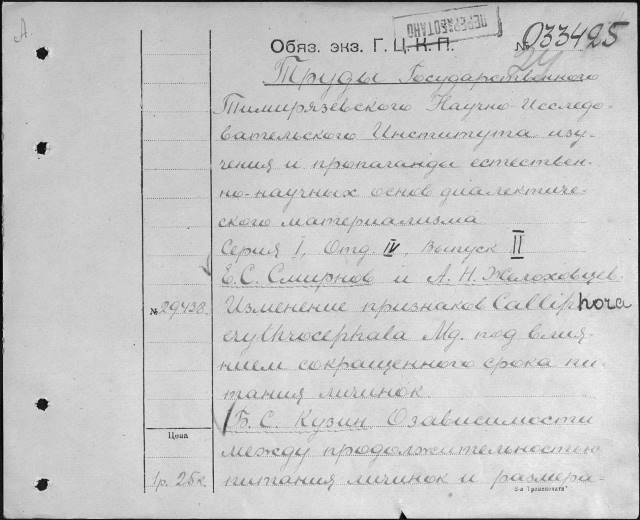 А.
ПЕРЕРАБОТАНО
Обяз. экз. Г. Ц. К. П.
№ 033425
24
Труды Государственного
Тимирязевского Научно-Исследо-
вательского Института изу-
чения и пропаганды естествен-
но-научных основ диалектиче-
ского материализма
Серия I, Отд. IV, Выпуск II
Е. С. Смирнов и А. Н. Желоховцев.
№ 29438.
Изменение признаков Calliphora
erythrocephala Mg. под влия-
нием сокращенного срока пи-
тания личинок
Б. С. Кузин О зависимости
Цена
между продолжительностью
1р. 25к.
питания личинок и размера-